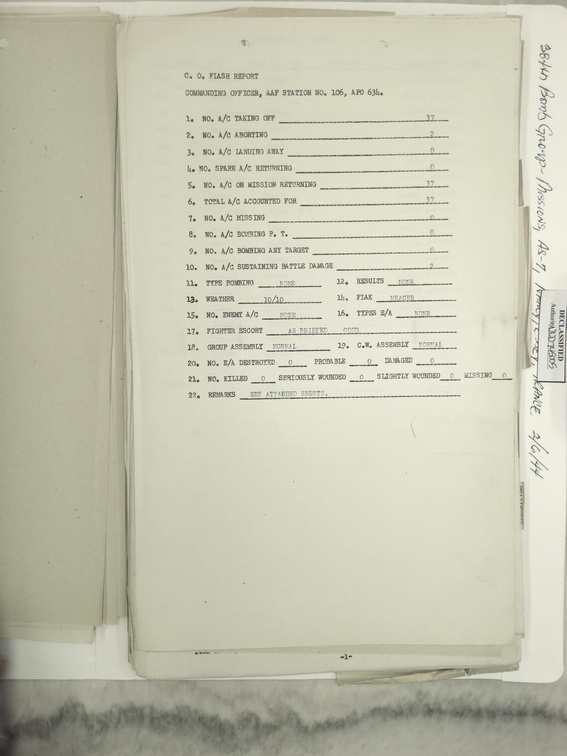 C. O. FLASH REPORT
COMMANDING OFFICER, AAF STATION NO. 106, APO 634.
1. NO. A/C TAKING OFF 37
2. NO. A/C ABORTING 2
3. NO. A/C LANDING AWAY 0
4. NO. SPARE A/C RETURNING 0
5. NO. A/C ON MISSION RETURNING 37
6. TOTAL A/C ACCOUNTED FOR 37
7. NO. A/C MISSING 0
8. NO. A/C BOMBING P. T. 0
9. NO. A/C BOMBING ANY TARGET 0
10. NO. A/C SUSTAINING BATTLE DAMAGE 2
11. TYPE BOMBING NONE 12. RESULTS NONE
13. WEATHER 10/10 14. FLAK MEAGER
15. NO. ENEMY A/C NONE 16. TYPES E/A NONE
17. FIGHTER ESCORT AS BRIEFED GOOD
18. GROUP ASSEMBLY NORMAL 19. C.W. ASSEMBLY NORMAL
20. NO. E/A DESTROYED 0 PROBABLE 0 DAMAGED 0
21. NO. KILLED 0 SERIOUSLY WOUNDED 0 SLIGHTLY WOUNDED 0 MISSING 0
22. REMARKS SEE ATTACHED SHEETS.
-1-
384th Bomb Group - Missions, AS-7, FRANCE 2/6/44
DECLASSIFIED
Authority